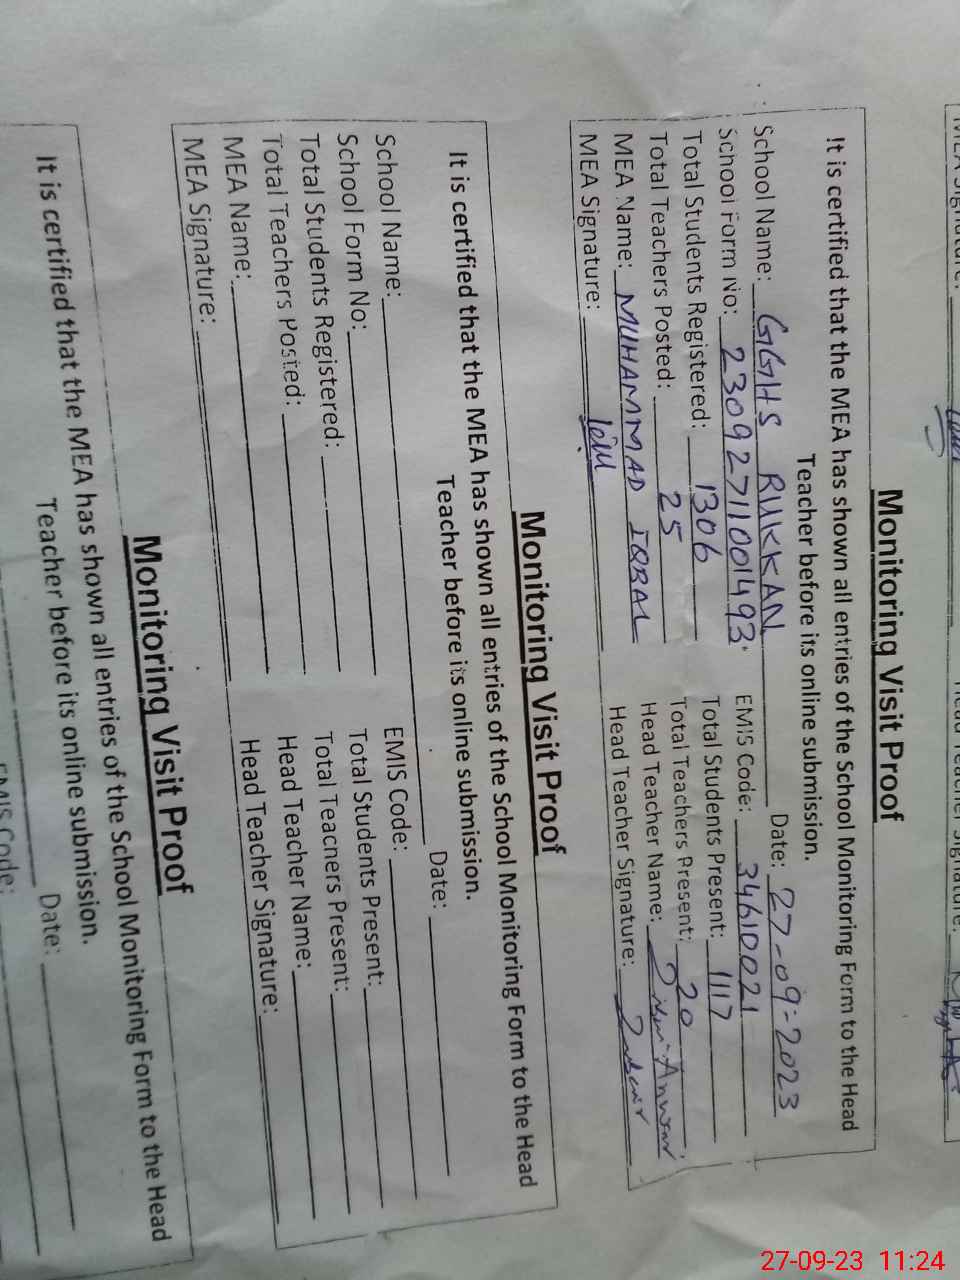 Monitoring Visit Proof
It is certified that the MEA has shown all entries of the School Monitoring Form to the Head
Teacher before its online submission.
School Name: GGHS RUKKAN Date: 27-09-2023
School Form No: 23092711001493 EMIS Code: 34610021
Total Students Registered: 1306 Total Students Present: 1117
Total Teachers Posted: 25 Total Teachers Present: 20
MEA Name: MUHAMMAD IQBAL Head Teacher Name: Anwar
MEA Signature: Head Teacher Signature:
Monitoring Visit Proof
It is certified that the MEA has shown all entries of the School Monitoring Form to the Head
Teacher before its online submission.
School Name: Date:
School Form No: EMIS Code:
Total Students Registered: Total Students Present:
Total Teachers Posted: Total Teachers Present:
MEA Name: Head Teacher Name:
MEA Signature: Head Teacher Signature:
Monitoring Visit Proof
It is certified that the MEA has shown all entries of the School Monitoring Form to the Head
Teacher before its online submission.
Date:
EMIS Code:
27-09-23 11:24